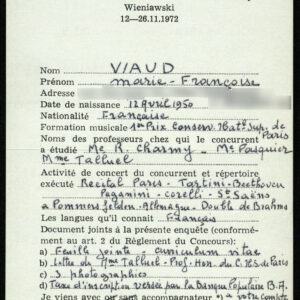 Wieniawski
12—26.11.1972
Nom VIAUD
Prénom Marie-Françoise
Adresse
Date de naissance 12 Avril 1950
Nationalité Française
Formation musicale 1er Prix Conserv. Natl. Sup. de Paris
Noms des professeurs chez qui le concurrent
a étudié Me R. Charmy - Me Pasquier
Mme Talluel
Activité de concert du concurrent et répertoire
exécuté Recital Paris - Tartini - Beethoven
Paganini - Corelli - St Saëns
à Pommersfelden - Allemagne - Double de Brahms
Les langues qu'il connait Français
Document joints à la présente enquête (conformé-
ment au art. 2 du Règlement du Concours):
a) Feuille jointe - curriculum vitae
b) Lettre de Mme Talluel - Prof. Hon. du C.N.S de Paris
c) 3 photographies
d) Taxe d'inscription versée par la Banque Populaire B.A.
Je viens avec ou sans accompagnateur